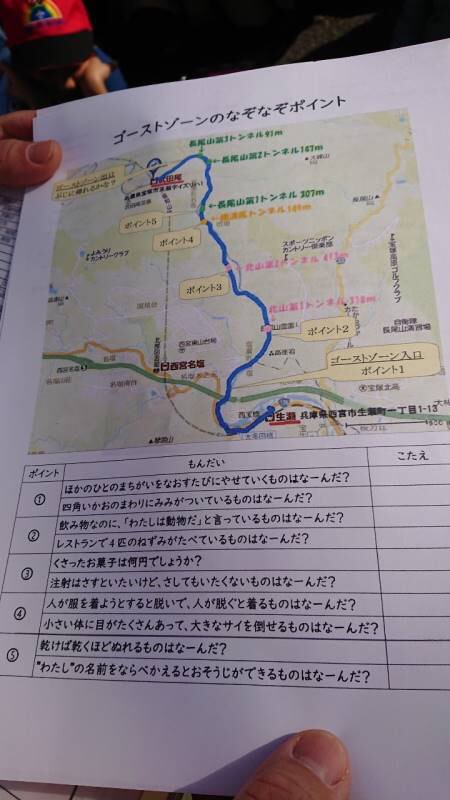 ゴーストゾーンのなぞなぞポイント
長尾山第3トンネル 91m
長尾山第2トンネル 147m
大峰山
ゴーストゾーン出口
ぶじに帰れるかな？
武田尾
長尾山第1トンネル 307m
ポイント5
ポイント4
よみうり
カントリークラブ
スポーツニッポン
カントリー倶楽部
宝塚高原ゴルフクラブ
北山第2トンネル 413m
ポイント3
北山第1トンネル 318m
ポイント2
自衛隊
長尾山演習場
西宮名塩
ゴーストゾーン入口
ポイント1
宝塚北高
生瀬 兵庫県西宮市生瀬町一丁目1-13
ポイント
もんだい
こたえ
①
ほかのひとのまちがいをなおすたびにやせていくものはなーんだ？
四角いかおのまわりにみみがついているものはなーんだ？
②
飲み物なのに、「わたしは動物だ」と言っているものはなーんだ？
レストランで4匹のねずみがたべているものはなーんだ？
③
くさったお菓子は何円でしょうか？
注射はさすといたいけど、さしてもいたくないものはなーんだ？
④
人が服を着ようとすると脱いで、人が脱ぐと着るものはなーんだ？
小さい体に目がたくさんあって、大きなサイを倒せるものはなーんだ？
⑤
乾けば乾くほどぬれるものはなーんだ？
"わたし"の名前をならべかえるとおそうじができるものはなーんだ？